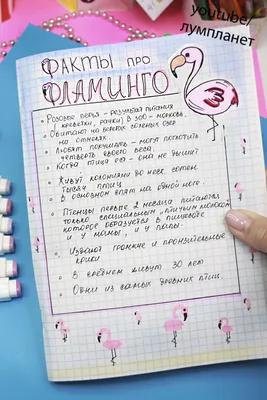 youtube/
лумпланет
ФАКТЫ ПРО
ФЛАМИНГО
• Розовые перья - результат питания
(креветки, рачки) В ЗОО - морковь.
• Обитают на берегах соленых озер
на отмелях.
• Любят покушать - могут поглотить
четверть своего веса.
• Когда птица ест - она не дышит!
• Живут колониями до неск. сотен
тысяч птиц
• В основном спят на одной ноге.
• Птенцы первые 2 месяца питаются
только специальным "птичьим молоком"
которое образуется в пищеводе
и у мамы, и у папы.
• Издают громкие и пронзительные
крики
• В среднем живут 30 лет
• Одни из самых древних птиц.